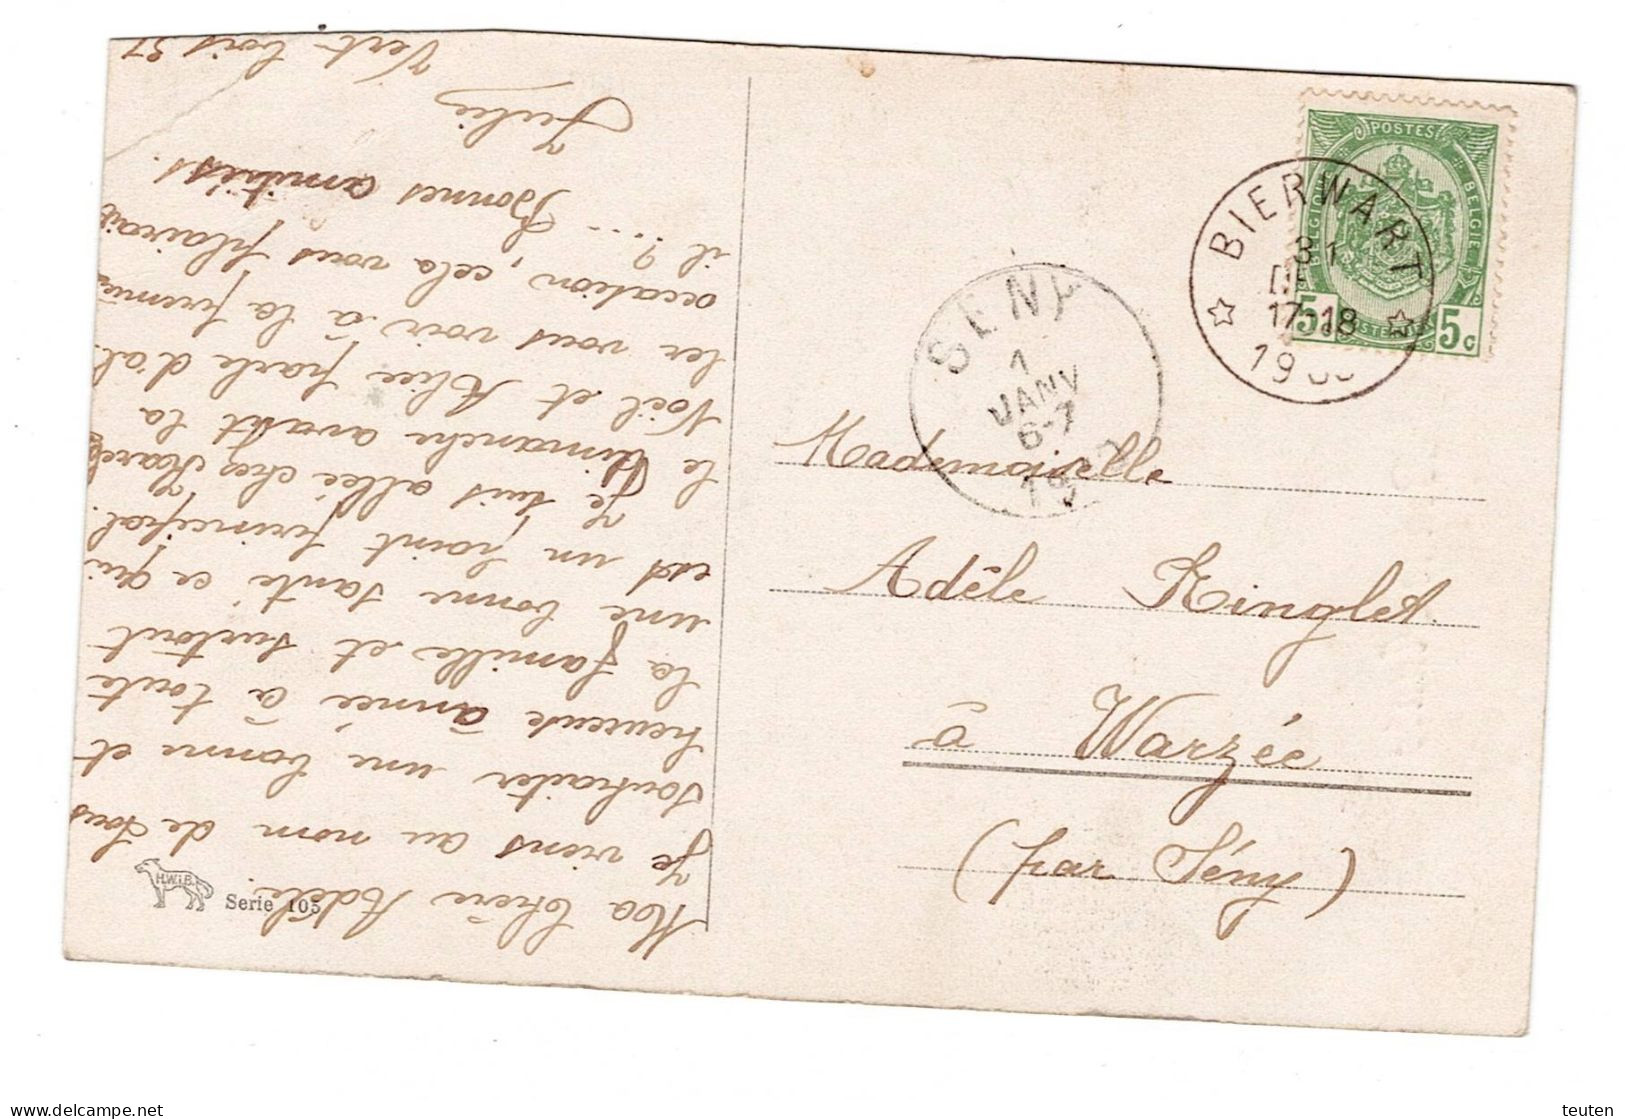 Ma chère Adèle
Je viens au nom de tous
souhaiter une bonne et
heureuse année à toute
la famille et surtout
une bonne santé ce qui
est un point principal.
Je suis allée chez
le Dimanche avant la
Noël et Alice parle d'al-
ler vous voir à la première
occation, cela vous plairait
il ?... Bonnes amitiés.
Julie
Vert-bois 31
H.W.i.B.
Serie 105
POSTES
BELGIQUE BELGIË
5c 5c
POSTERIJEN
BIERWART
31
DE
17-18
19
SENY
1
JANV
6-7
19
Mademoiselle
Adèle Ringlet.
à Warzée
(par Sény)
teuten